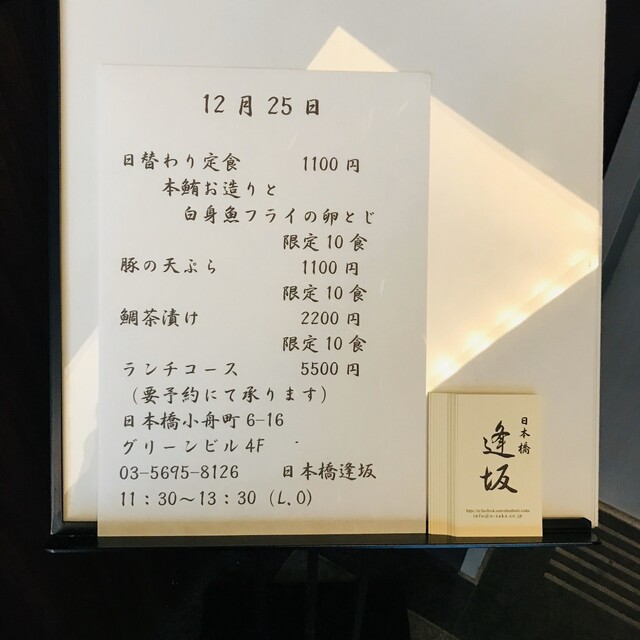 12月25日
日替わり定食 1100円
本鮪お造りと
白身魚フライの卵とじ
限定10食
豚の天ぷら 1100円
限定10食
鯛茶漬け 2200円
限定10食
ランチコース 5500円
（要予約にて承ります）
日本橋小舟町6-16
グリーンビル4F
03-5695-8126 日本橋逢坂
11：30～13：30（L.O）
日本橋
逢坂